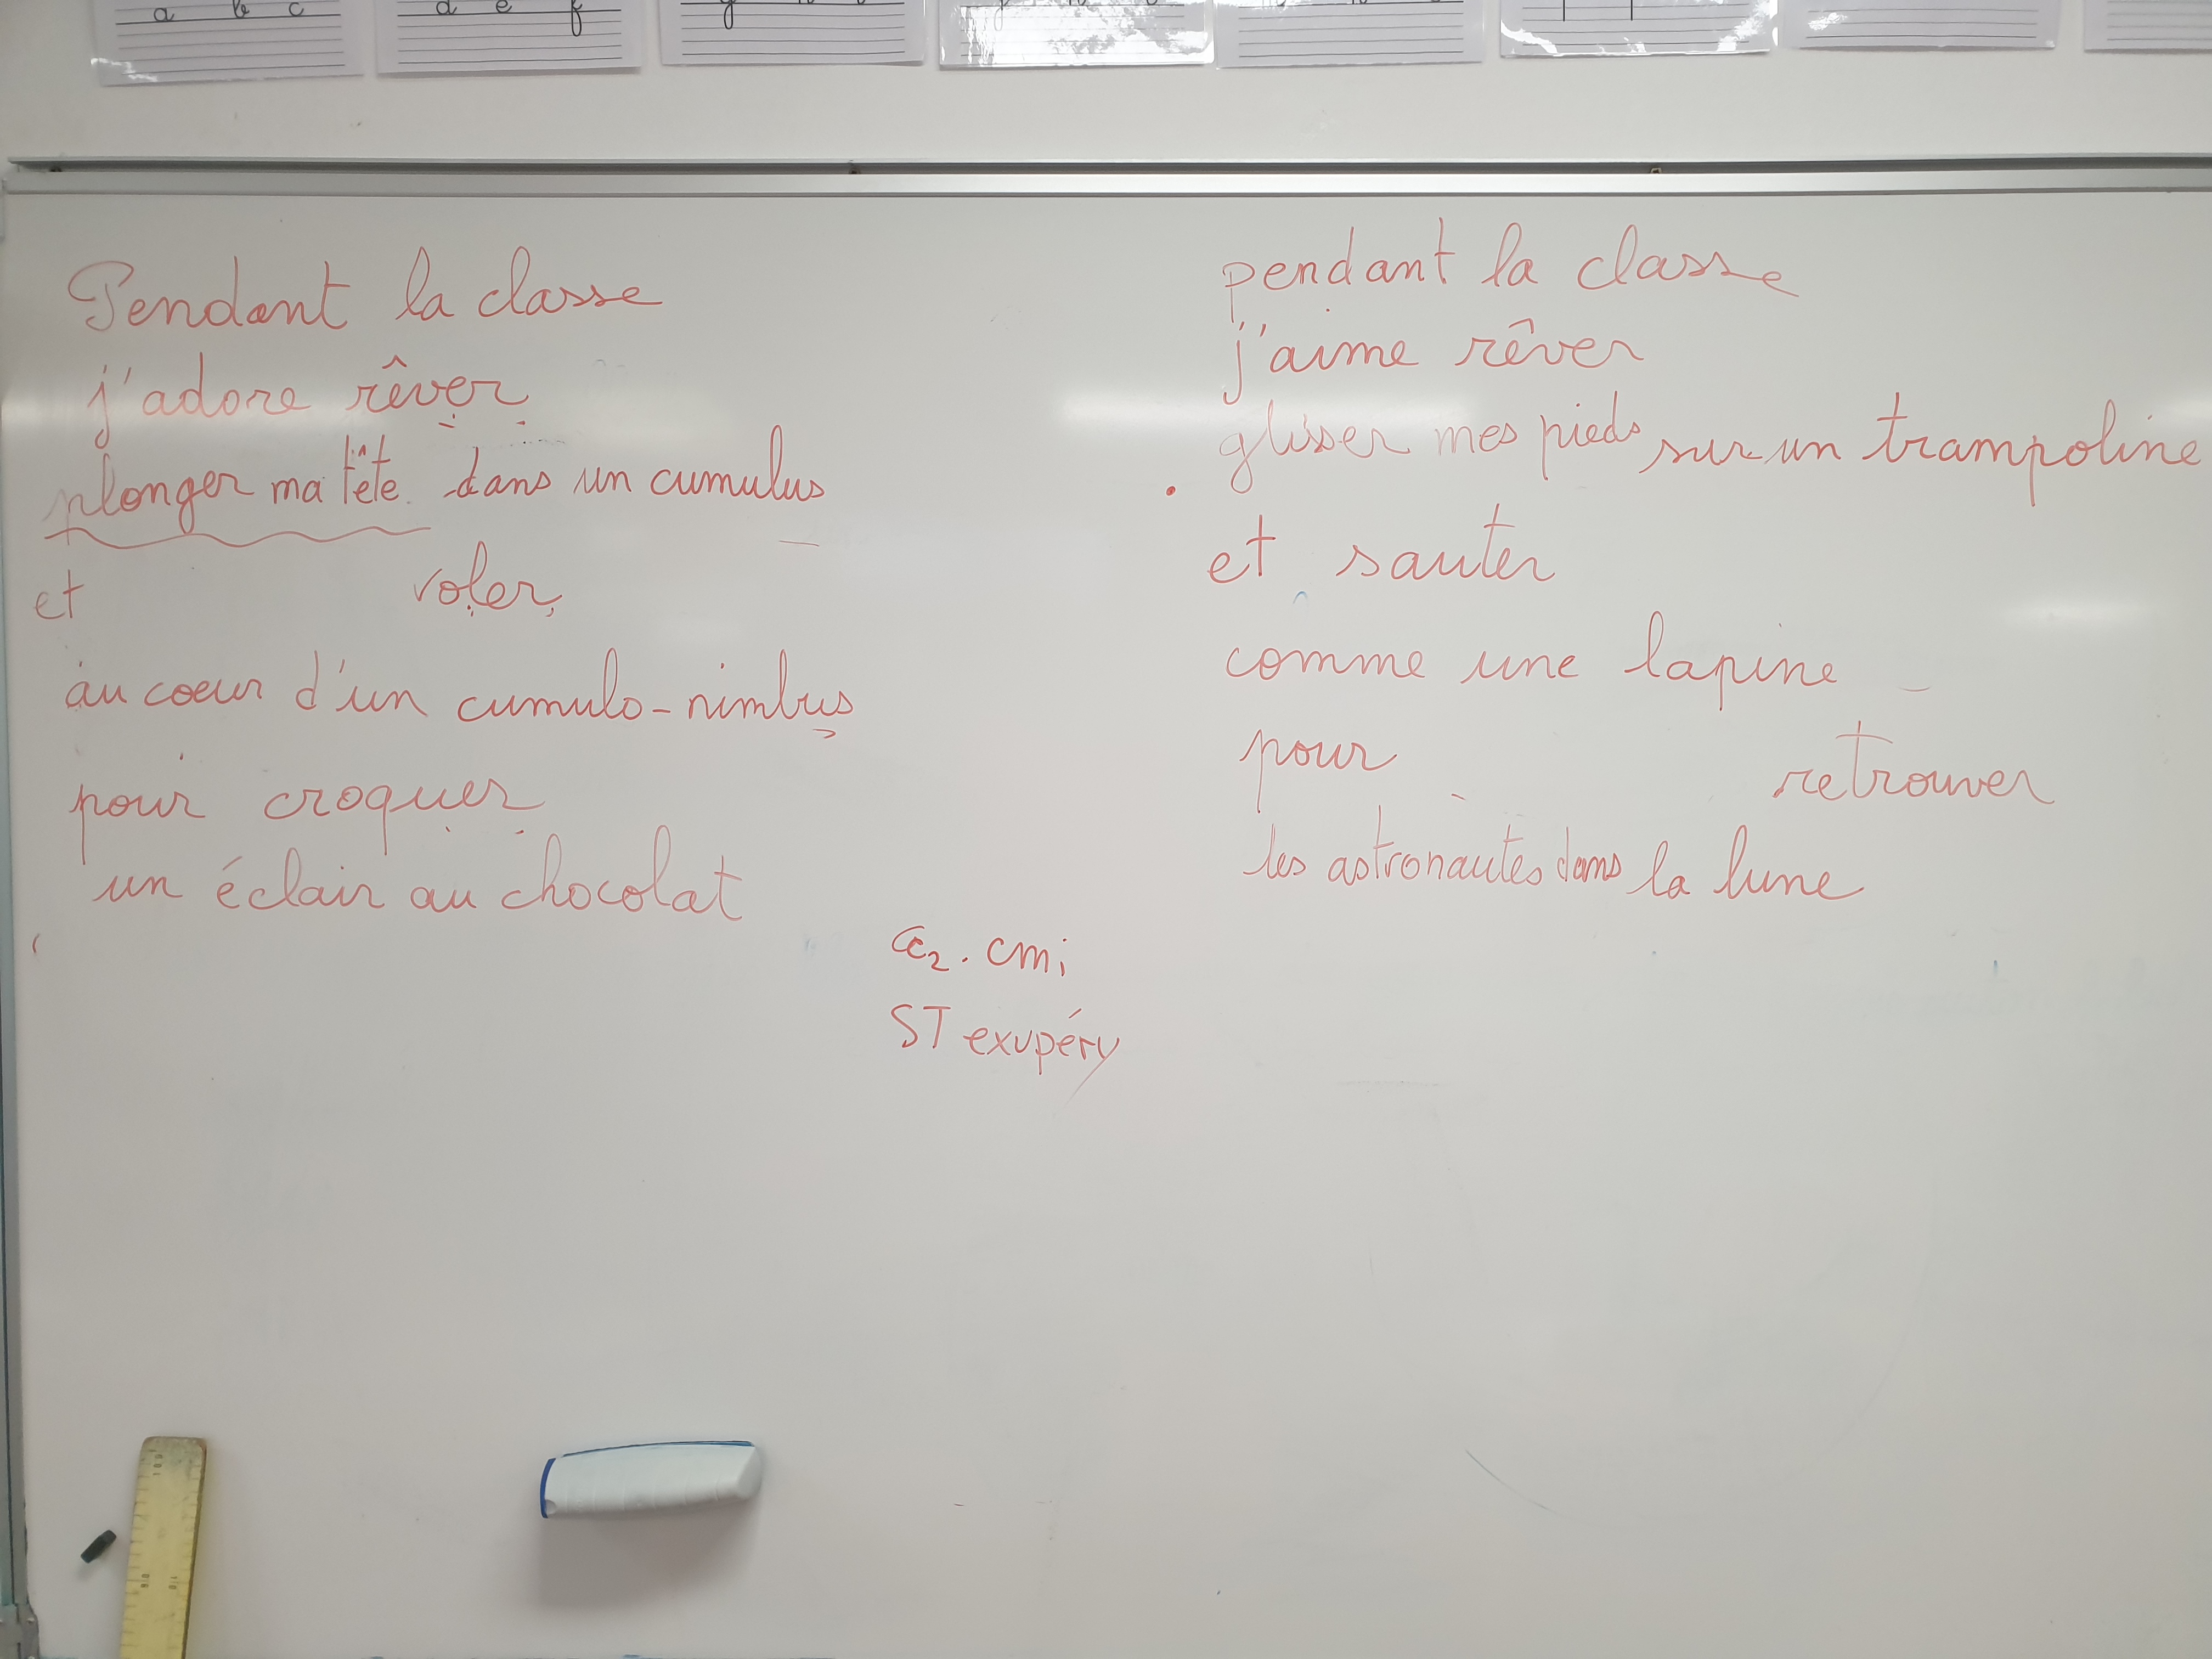 a b c d e f
Pendant la classe
j'adore rêver
plonger ma tête dans un cumulus
et voler
au coeur d'un cumulo-nimbus
pour croquer
un éclair au chocolat
pendant la classe
j'aime rêver
glisser mes pieds sur un trampoline
et sauter
comme une lapine
pour retrouver
les astronautes dans la lune
ce2. cm1
ST exupéry